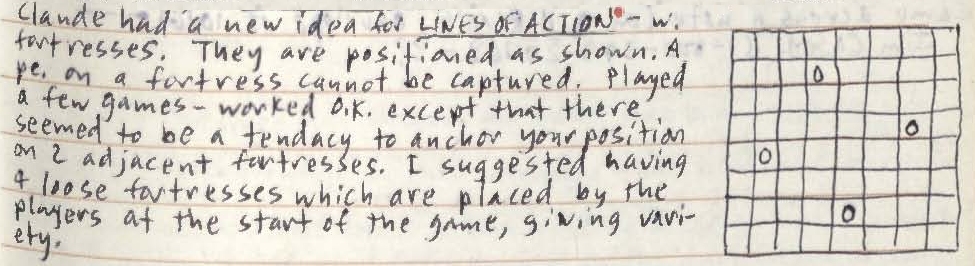 Claude had a new idea for LINES OF ACTION - w.
fortresses. They are positioned as shown. A
pc. on a fortress cannot be captured. Played
a few games - worked O.K. except that there
seemed to be a tendacy to anchor your position
on 2 adjacent fortresses. I suggested having
4 loose fortresses which are placed by the
players at the start of the game, giving vari-
ety.